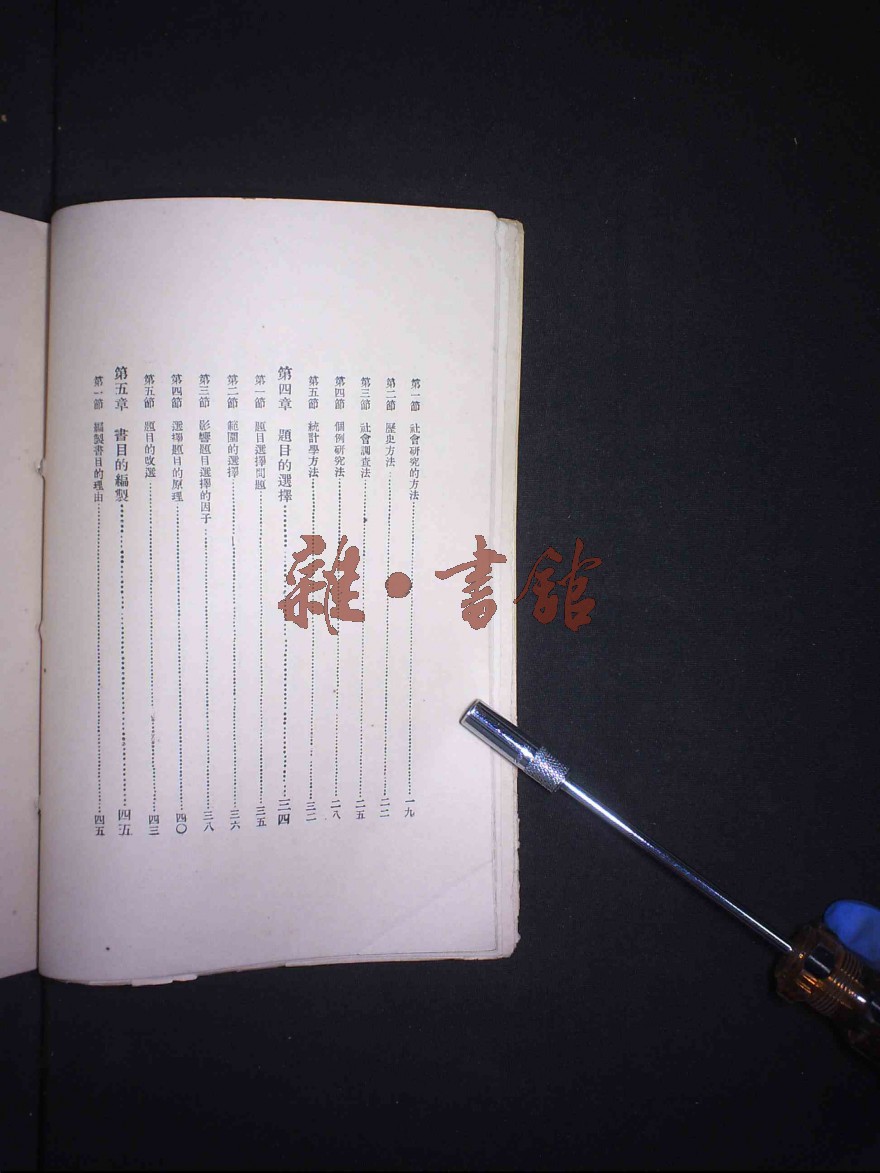 第一節 社會研究的方法……一九
第二節 歷史方法……二二
第三節 社會調查法……二五
第四節 個例研究法……二八
第五節 統計學方法……三二
第四章 題目的選擇……三四
第一節 題目選擇問題……三五
第二節 範圍的選擇……三六
第三節 影響題目選擇的因子……三八
第四節 選擇題目的原理……四〇
第五節 題目的改選……四三
第五章 書目的編製……四五
第一節 編製書目的理由……四五
雜·書館